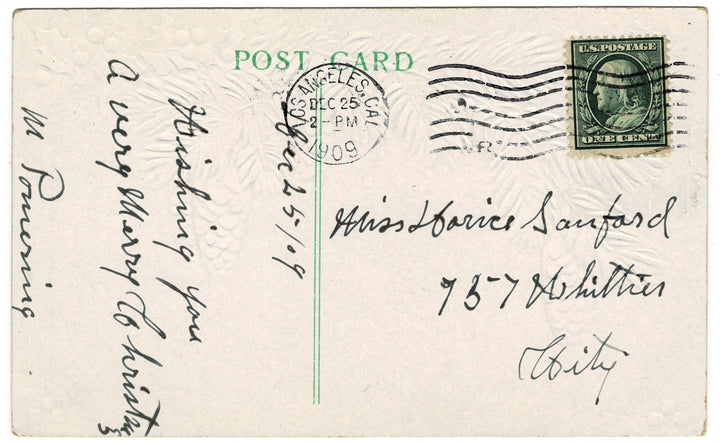 POST CARD
LOS ANGELES, CAL.
DEC 25
2-PM
1909
U.S. POSTAGE
ONE CENT
Dec 25/09
Wishing you
A very Merry Christ
M Pomering
Miss Sanford
757 Whittier
City